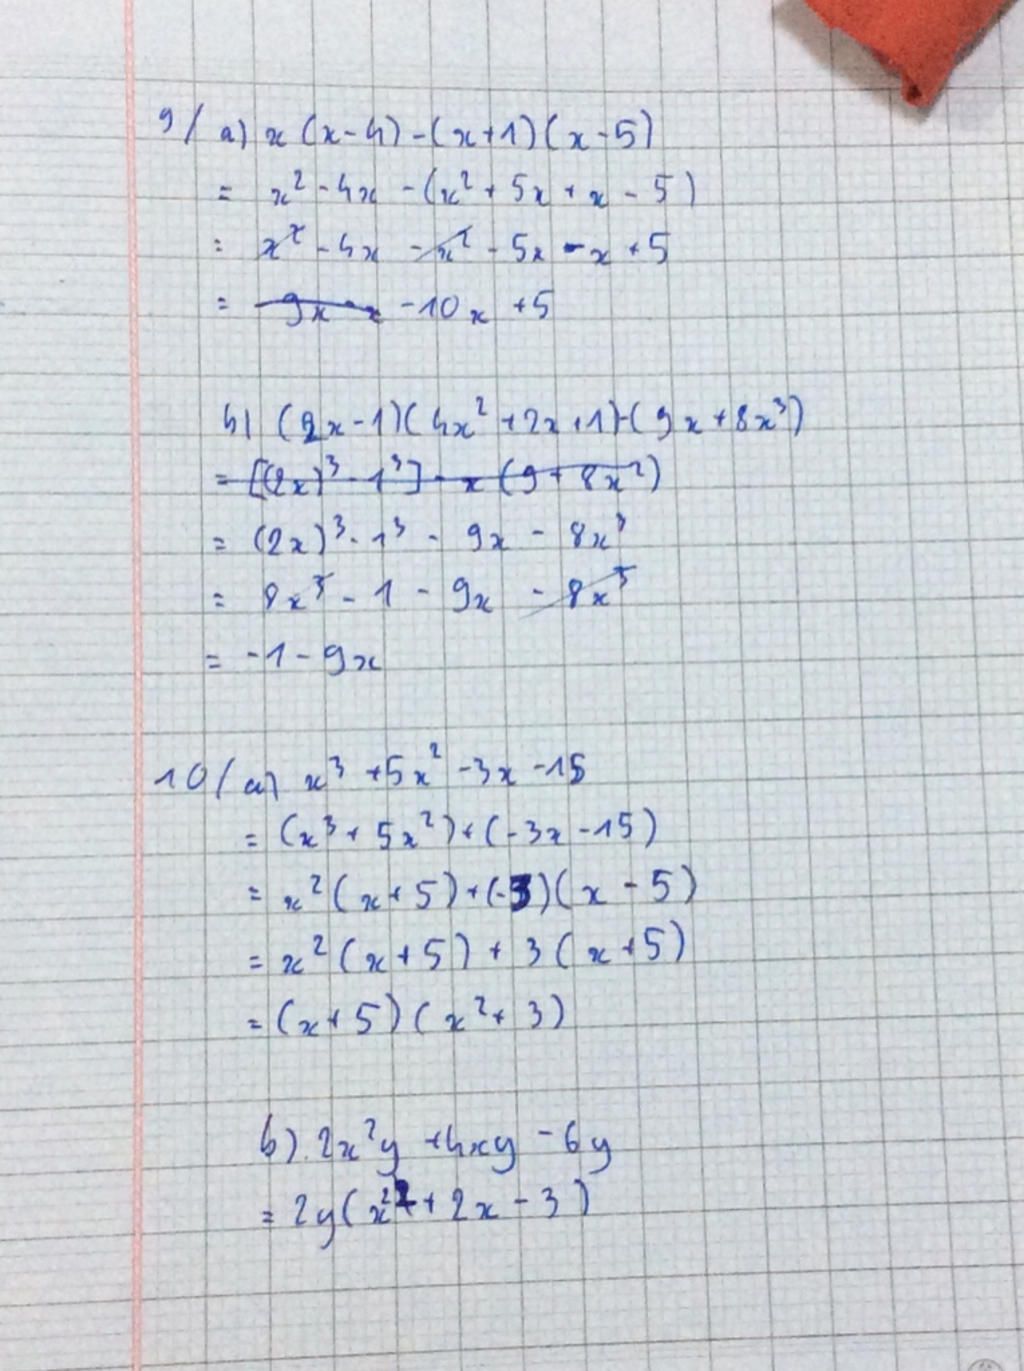 9/ a) x(x-4)-(x+1)(x-5)
= x² - 4x - (x² + 5x + x - 5)
= x² - 4x - x² - 5x - x + 5
= 9x x -10x +5
b) (2x-1)(4x²+2x+1)-(9x+8x³)
= [(2x)³ - 1³] - x(9+8x²)
= (2x)³ - 1³ - 9x - 8x³
= 8x³ - 1 - 9x - 8x³
= -1 - 9x
10/ a) x³ +5x² -3x -15
= (x³ + 5x²) + (-3x -15)
= x²(x+5) + (-3)(x - 5)
= x²(x+5) + 3(x+5)
= (x+5)(x² + 3)
b) 2x²y +4xy -6y
= 2y(x² + 2x - 3)